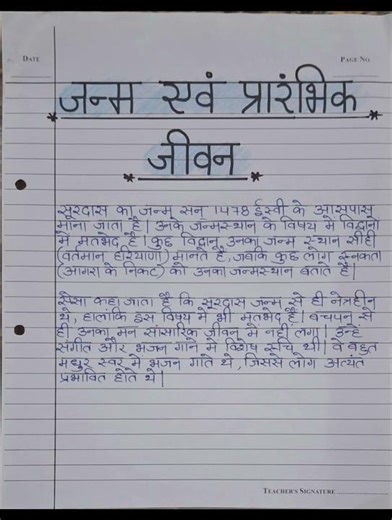 DATE
PAGE NO.
जन्म एवं प्रारंभिक
जीवन
सूरदास का जन्म सन् 1478 ईस्वी के आसपास
माना जाता है। उनके जन्मस्थान के विषय में विद्वानों
में मतभेद है। कुछ विद्वान् उनका जन्म स्थान सीही
(वर्तमान हरियाणा) मानते हैं, जबकि कुछ लोग रुनकता
(आगरा के निकट) को उनका जन्मस्थान बताते हैं।
ऐसा कहा जाता है कि सूरदास जन्म से ही नेत्रहीन
थे, हालांकि इस विषय में भी मतभेद हैं। बचपन से
ही उनका मन सांसारिक जीवन में नहीं लगा। उन्हें
संगीत और भजन गाने में विशेष रुचि थी। वे बहुत
मधुर स्वर में भजन गाते थे, जिससे लोग अत्यंत
प्रभावित होते थे।
TEACHER'S SIGNATURE